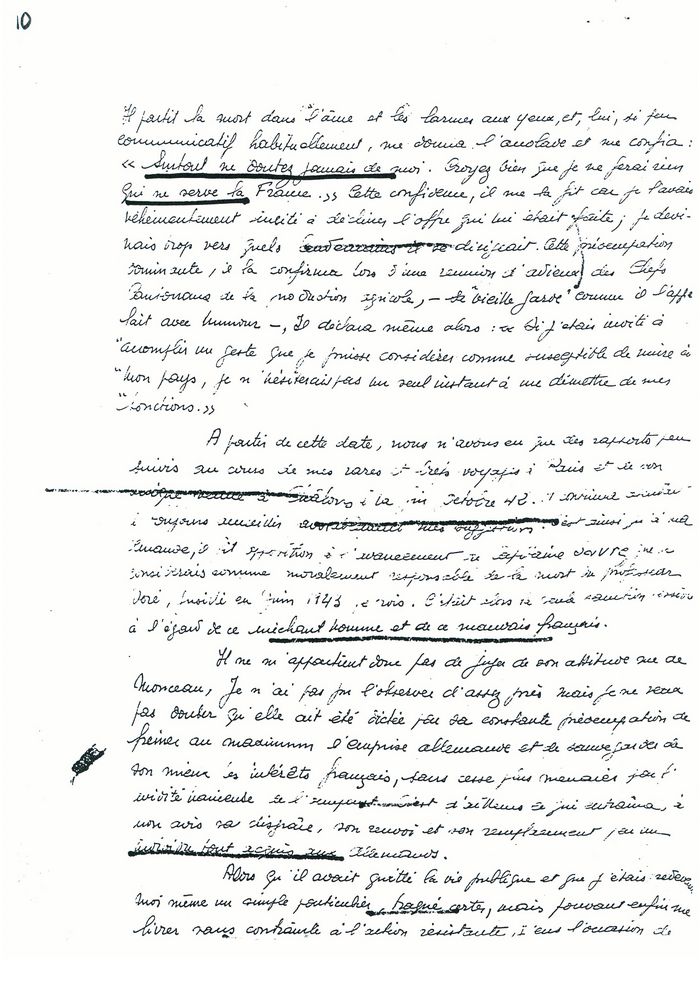 10
Il partit la mort dans l'âme et les larmes aux yeux, et, lui, si peu
communicatif habituellement, me donna l'accolade et me confia :
« Surtout ne doutez jamais de moi. Croyez bien que je ne ferai rien
qui ne serve la France. » Cette confidence, il me la fit car je l'avais
véhémentement incité à décliner l'offre qui lui était faite ; je devi-
nais trop vers quels dirigeait. Cette préoccupation
dominante, il la confirma lors d'une réunion d'adieux des Chefs
de la production agricole, - la "vieille garde" comme il l'appe
lait avec humour -, Il déclara même alors : « Si j'étais invité à
"accomplir un geste que je puisse considérer comme susceptible de nuire à
"mon pays, je n'hésiterais pas un seul instant à me démettre de mes
"fonctions. »
A partir de cette date, nous n'avons eu que des rapports peu
suivis au cours de mes rares et brefs voyages à Paris et de son
à Châlons à la fin Octobre 42.
a toujours accueilli c'est ainsi qu'à ma
demande, il fit opposition à l'avancement du capitaine que je
considérais comme moralement responsable de la mort du professeur
fusillé en Juin 1943 je crois. C'était alors la seule sanction
à l'égard de ce méchant homme et de ce mauvais français.
Il ne m'appartient donc pas de juger de son attitude rue de
Monceau, Je n'ai pas pu l'observer d'assez près mais je ne veux
pas douter qu'elle ait été dictée par sa constante préoccupation de
freiner au maximum l'emprise allemande et de sauvegarder de
son mieux les intérêts français, sans cesse plus menacés par l'
avidité haineuse de d'ailleurs ce qui entraîna, à
mon avis sa disgrâce, son renvoi et son remplacement par un
individu tout acquis aux Allemands.
Alors qu'il avait quitté la vie publique et que j'étais redevenu
moi même un simple particulier, traqué certes, mais pouvant enfin me
livrer sans contrainte à l'action résistante, j'eus l'occasion de